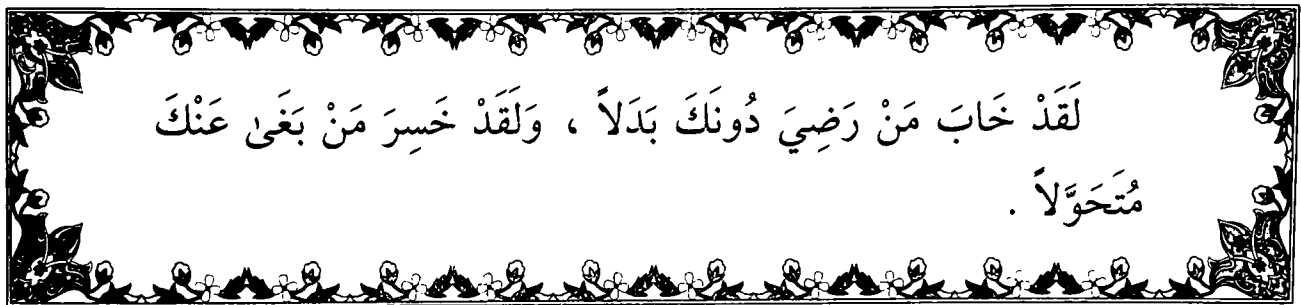 لَقَدْ خَابَ مَنْ رَضِيَ دُونَكَ بَدَلاً ، وَلَقَدْ خَسِرَ مَنْ بَغَىٰ عَنْكَ
مُتَحَوَّلاً .